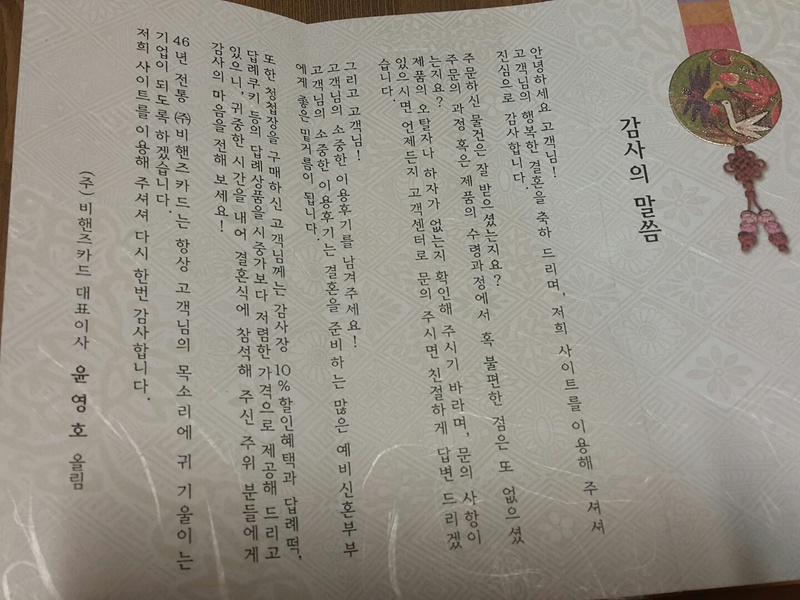 감사의 말씀
안녕하세요 고객님!
고객님의 행복한 결혼을 축하 드리며, 저희 사이트를 이용해 주셔서
진심으로 감사합니다.
주문하신 물건은 잘 받으셨는지요?
주문의 과정 혹은 제품의 수령과정에서 혹 불편한 점은 또 없으셨
는지요?
제품의 오탈자나 하자가 없는지 확인해 주시기 바라며, 문의 사항이
있으시면 언제든지 고객센터로 문의 주시면 친절하게 답변 드리겠
습니다.
그리고 고객님!
고객님의 소중한 이용후기를 남겨주세요!
고객님의 소중한 이용후기는 결혼을 준비하는 많은 예비신혼부부
에게 좋은 밑거름이 됩니다.
또한 청첩장을 구매하신 고객님께는 감사장 10% 할인혜택과 답례떡,
답례쿠키 등의 답례상품을 시중가보다 저렴한 가격으로 제공해 드리고
있으니, 귀중한 시간을 내어 결혼식에 참석해 주신 주위 분들에게
감사의 마음을 전해 보세요!
46년 전통 ㈜비핸즈카드는 항상 고객님의 목소리에 귀 기울이는
기업이 되도록 하겠습니다.
저희 사이트를 이용해 주셔서 다시 한번 감사합니다.
(주) 비핸즈카드 대표이사 윤영호 올림